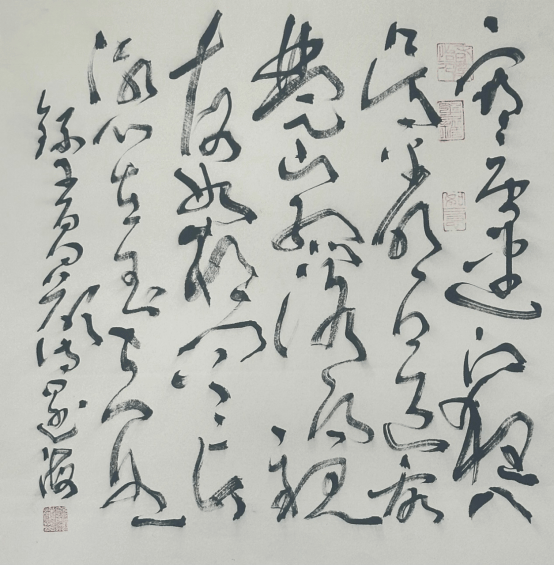 寒雨連江夜入
吴平明送客
楚山孤洛陽親
友如相问一片
冰心在玉壶
録王昌龄诗